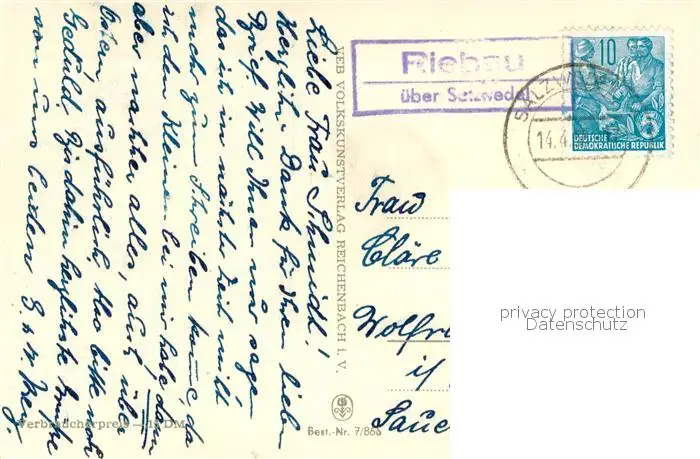 Liebe Frau Schmidt!
Herzlichen Dank für Ihren lieben
Brief. Will Ihnen nur sagen
das ich in nächster Zeit nicht
mehr zum Schreiben komme, da
ich den Kleinen bei mir habe, dann
aber nachher alles, auch über
Ostern, ausführlich. Also bitte noch
Geduld. Bis dahin herzlichste Grüße
von uns beiden
VEB VOLKSKUNSTVERLAG REICHENBACH i. V.
Verbraucherpreis
DM
Best.-Nr. 7/866
Riebau
über Salzwedel
SALZWEDEL
14.4.
10
5
DEUTSCHE
DEMOKRATISCHE REPUBLIK
Frau
Cläre
Wolfr
if
Saue
privacy protection
Datenschutz